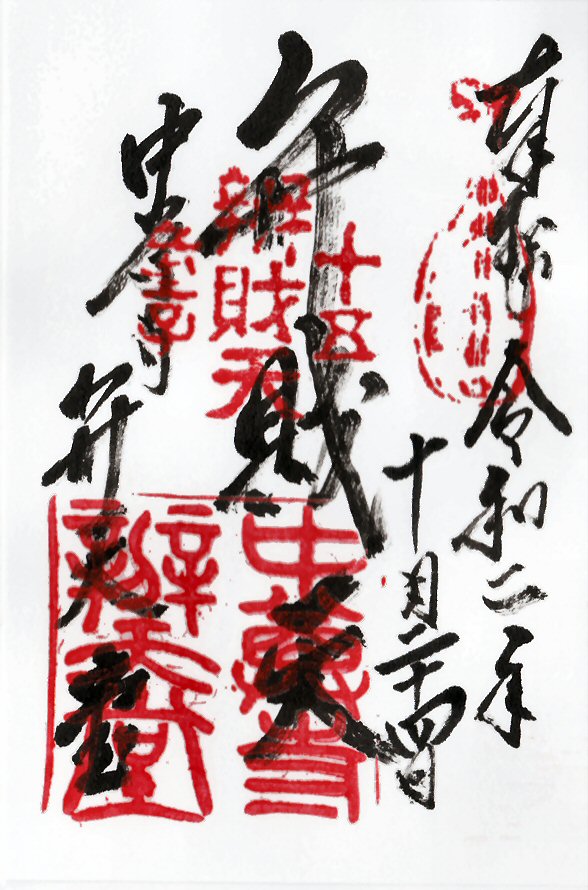 奉拝 令和二年
十月二十四日
弁財天
中尊寺
弁天堂
十五
辨財天
童子
中尊寺
辨天堂